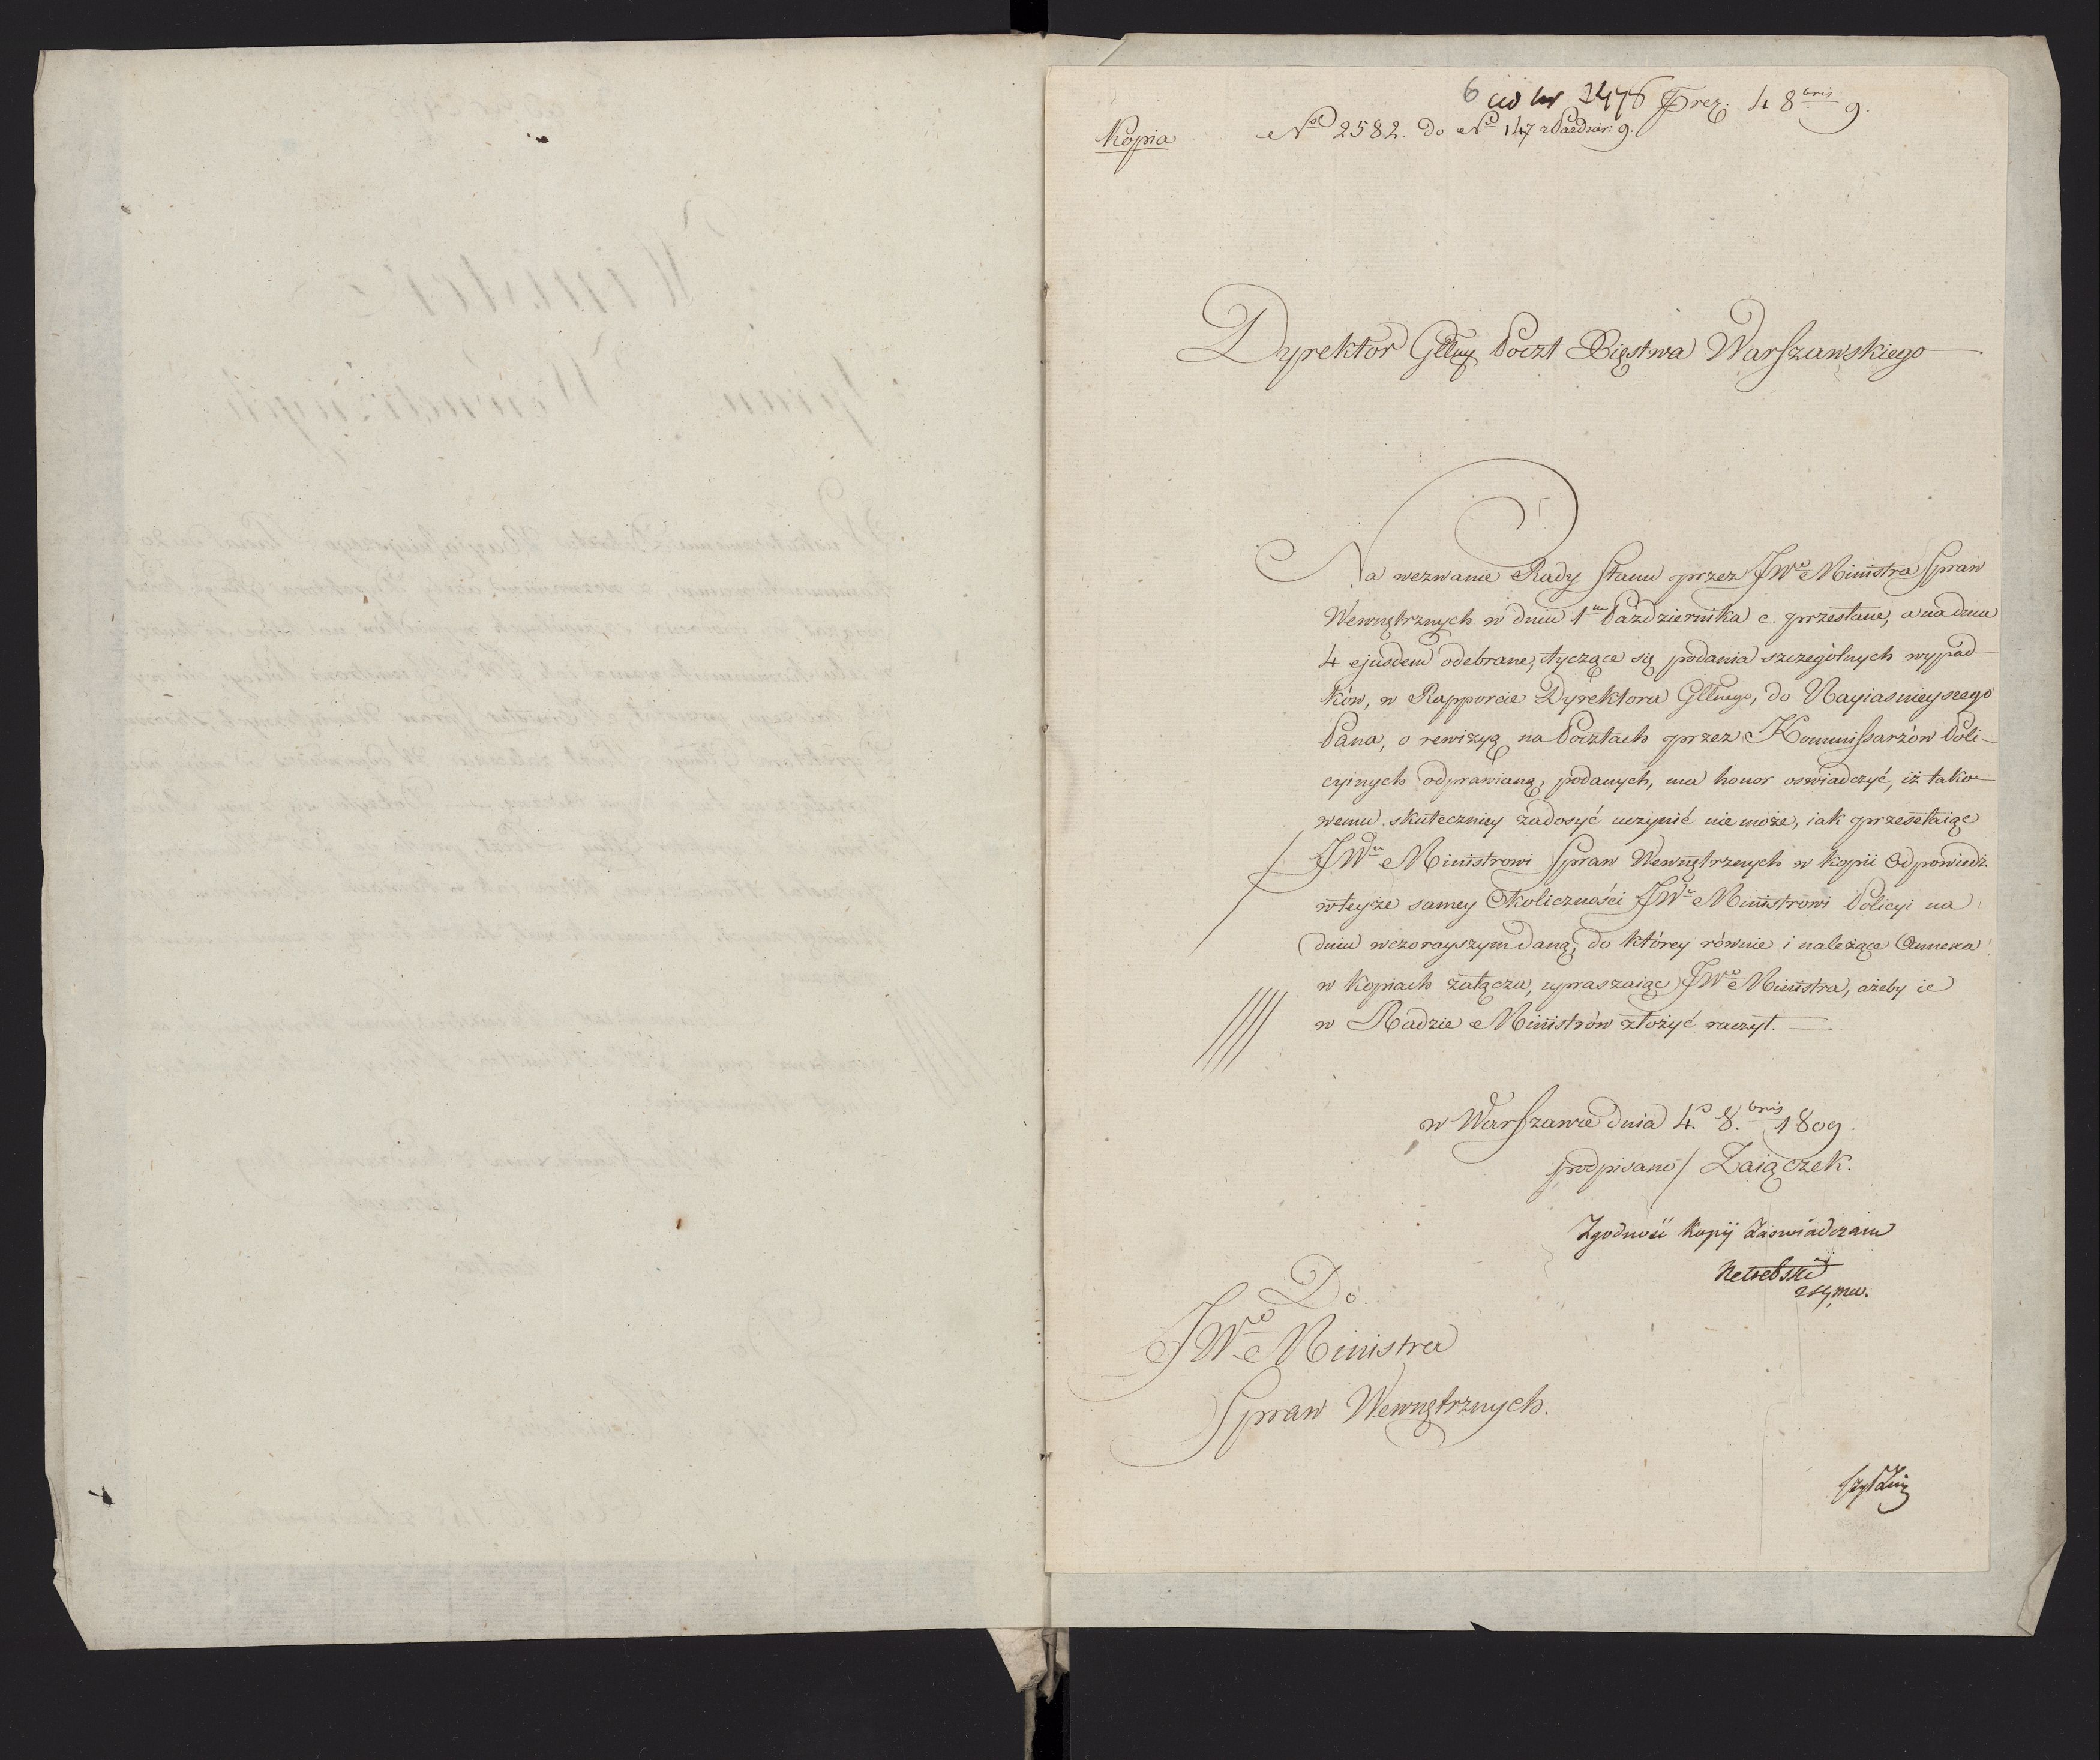 6 ad Nr 2478 Prez. 4 8bris 9.
Kopia No 2582. do No 147 Paździer: 9.
Dyrektor Gllny Poczt Xięstwa Warszawskiego
Na wezwanie Rady Stanu przez JWo Ministra Spraw
Wewnętrznych w dniu 1m Października c. przesłane, a na dniu
4 ejusdem odebrane, tyczące się podania szczególnych wypad-
ków, w Rapporcie Dyrektora Gllnego, do Nayiasnieyszego
Pana, o rewizyą na Pocztach przez Kommissarzów Poli-
cyinych odprawianą, podanych, ma honor oświadczyć, iż tako-
wemu skuteczniey zadosyć uczynić nie może, iak przesełaiąc
JWu Ministrowi Spraw Wewnętrznych w kopii Odpowiedź
w teyże samey Okoliczności JWu Ministrowi Policyi na
dniu wczorayszym daną, do którey równie i należące Annexa
w Kopiach załącza, upraszaiąc JWo Ministra, ażeby ie
w Radzie Ministrów złożyć raczył.
w Warszawie dnia 4. 8.bris 1809.
podpisano / Zaiączek.
Zgodność kopij Zaswiadczam
Do
JWo Ministra
Spraw Wewnętrznych.